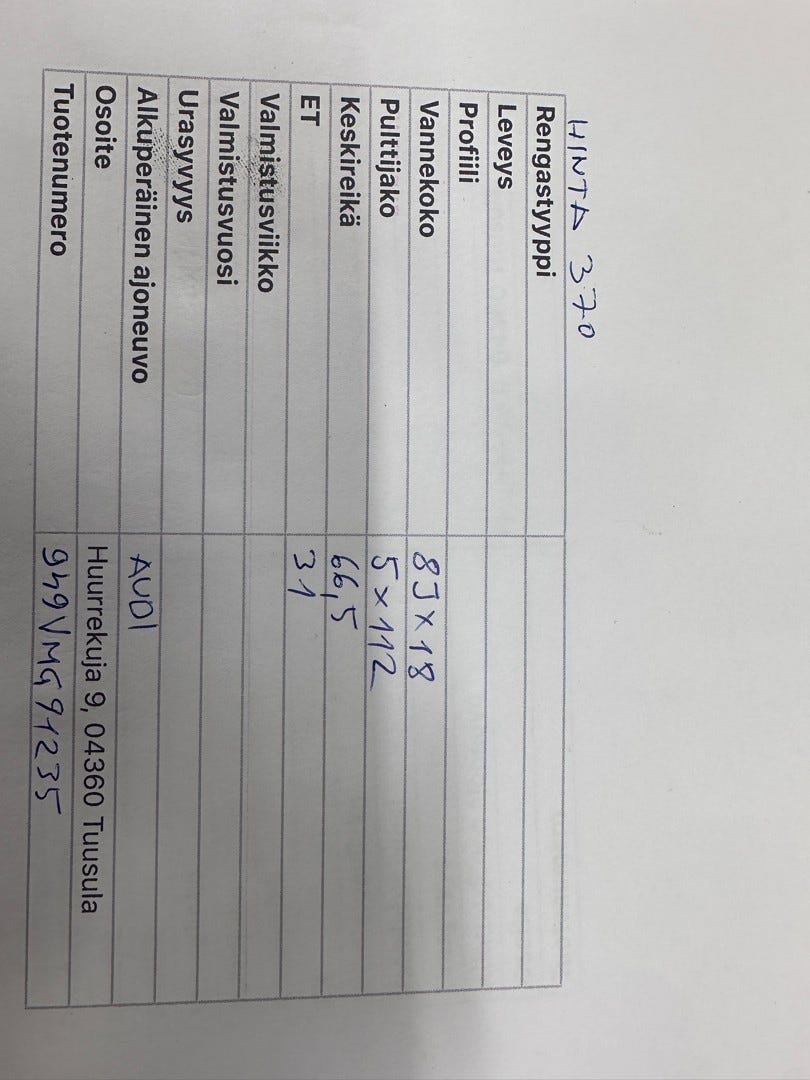 HINTA 370
Rengastyyppi
Leveys
Profiili
Vannekoko 8Jx18
Pulttijako 5x112
Keskireikä 66,5
ET 31
Valmistusviikko
Valmistusvuosi
Urasyvyys
Alkuperäinen ajoneuvo AUDI
Osoite Huurrekuja 9, 04360 Tuusula
Tuotenumero 949VMG91235